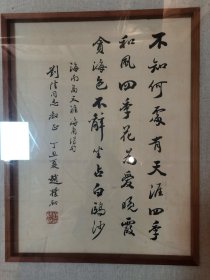 不知何處有天涯四季
和風四季花為愛晚霞
貪海色不辭坐占白鷗沙
海南島天涯海角得句
劉 同志 教正 丁丑夏 趙樸初